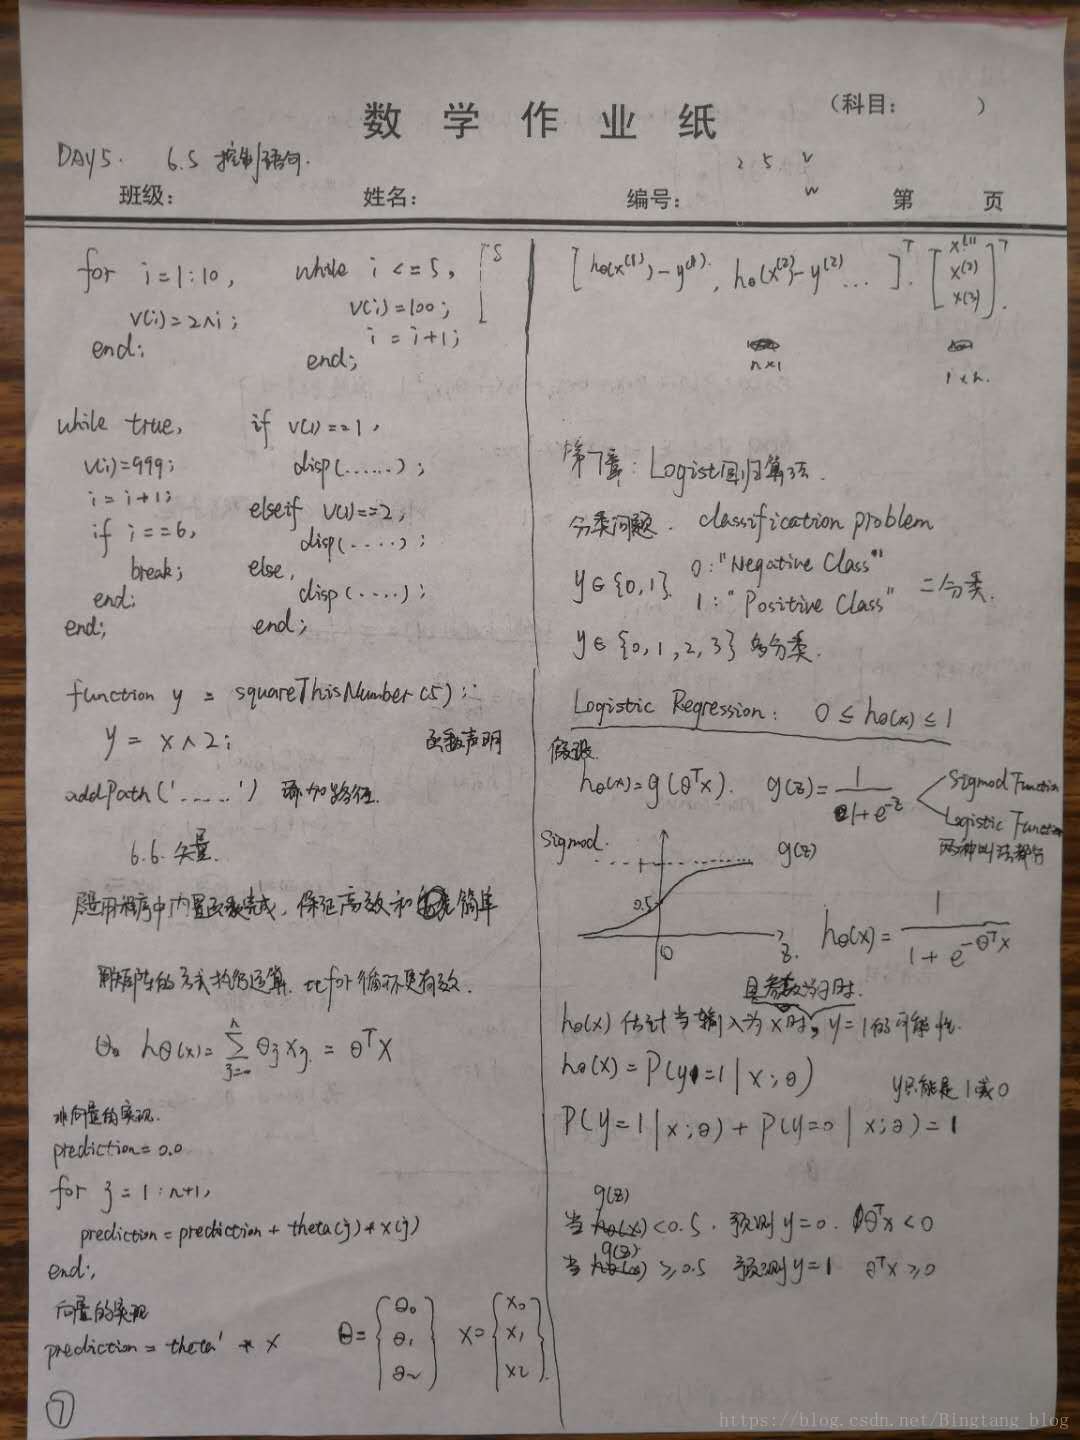 数 学 作 业 纸
（科目： ）
DAY5. 6.5 控制语句.
2 5 v
w
班级： 姓名： 编号： 第 页
for i=1:10,
v(i)=2^i;
end;
while i<=5,
v(i)=100;
i = i+1;
end;
while true,
v(i)=999;
i = i+1;
if i==6,
break;
end;
end;
if v(1)==1,
disp(......);
elseif v(1)==2,
disp(.....);
else,
disp(.....);
end;
function y = squareThisNumber(5);
y = x^2;
函数声明
addPath('......') 添加路径.
6.6. 矢量.
用程序中内置函数完成，保证高效和简单
用矩阵的方式执行运算. 比for循环更有效.
hθ(x)= ∑ θj xj = θᵀX
n
j=0
非向量的实现.
prediction=0.0
for j=1:n+1,
prediction=prediction + theta(j)*x(j)
end;
向量的实现
prediction = theta' * x
θ= { θ0 θ1 θ2 } x= { x0 x1 x2 }
7
[hθ(x(1))-y(1), hθ(x(2))-y(2)...]ᵀ. [x(1) x(2) x(3)]ᵀ.
n×1
1×n.
第7章: Logist回归算法.
分类问题. classification problem
y∈{0,1}. 0:"Negative Class"
1:"Positive Class" 二分类.
y∈{0,1,2,3} 多分类.
Logistic Regression: 0≤hθ(x)≤1
假设.
hθ(x)=g(θᵀx). g(z)= 1/(1+e^-z)
Sigmod Function
Logistic Function
两种叫法都行
Sigmod.
1
g(z)
0.5
0
z.
hθ(x)= 1/(1+e^-θᵀx)
且参数为θ时.
hθ(x) 估计当输入为x时, y=1的可能性.
hθ(x)=P(y=1|x;θ)
y只能是1或0
P(y=1|x;θ)+P(y=0|x;θ)=1
g(z)
当 hθ(x)<0.5. 预测 y=0. θᵀx<0
g(z)
当 hθ(x)≥0.5 预测 y=1 θᵀx≥0
https://blog.csdn.net/Bingtang_blog